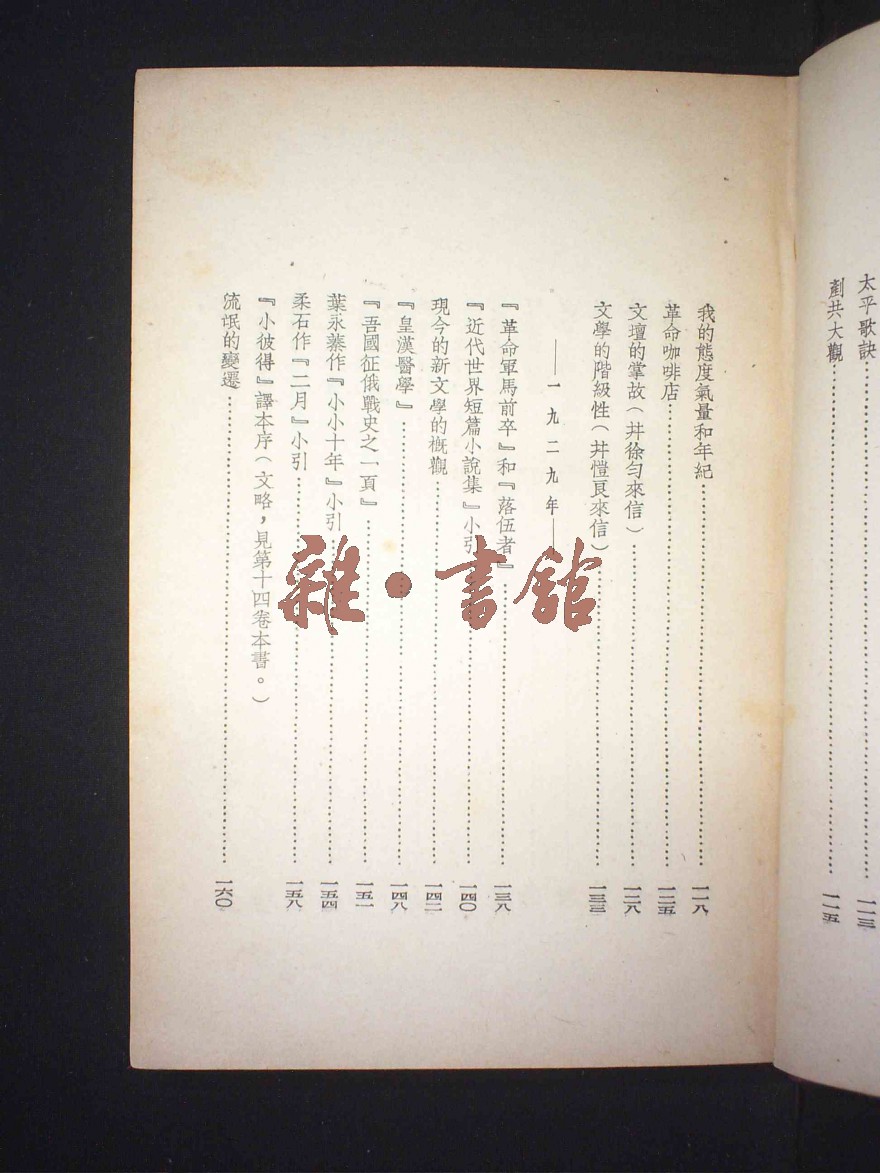 太平歌訣……一一三
剷共大觀……一一五
我的態度氣量和年紀……一一八
革命咖啡店……一二五
文壇的掌故（幷徐勻來信）……一二八
文學的階級性（幷愷良來信）……一三三
——一九二九年——
『革命軍馬前卒』和『落伍者』……一三八
『近代世界短篇小說集』小引……一四〇
現今的新文學的概觀……一四二
『皇漢醫學』……一四八
『吾國征俄戰史之一頁』……一五一
葉永蓁作『小小十年』小引……一五四
柔石作『二月』小引……一五八
『小彼得』譯本序（文略，見第十四卷本書。）
流氓的變遷……一六〇
雜·書館